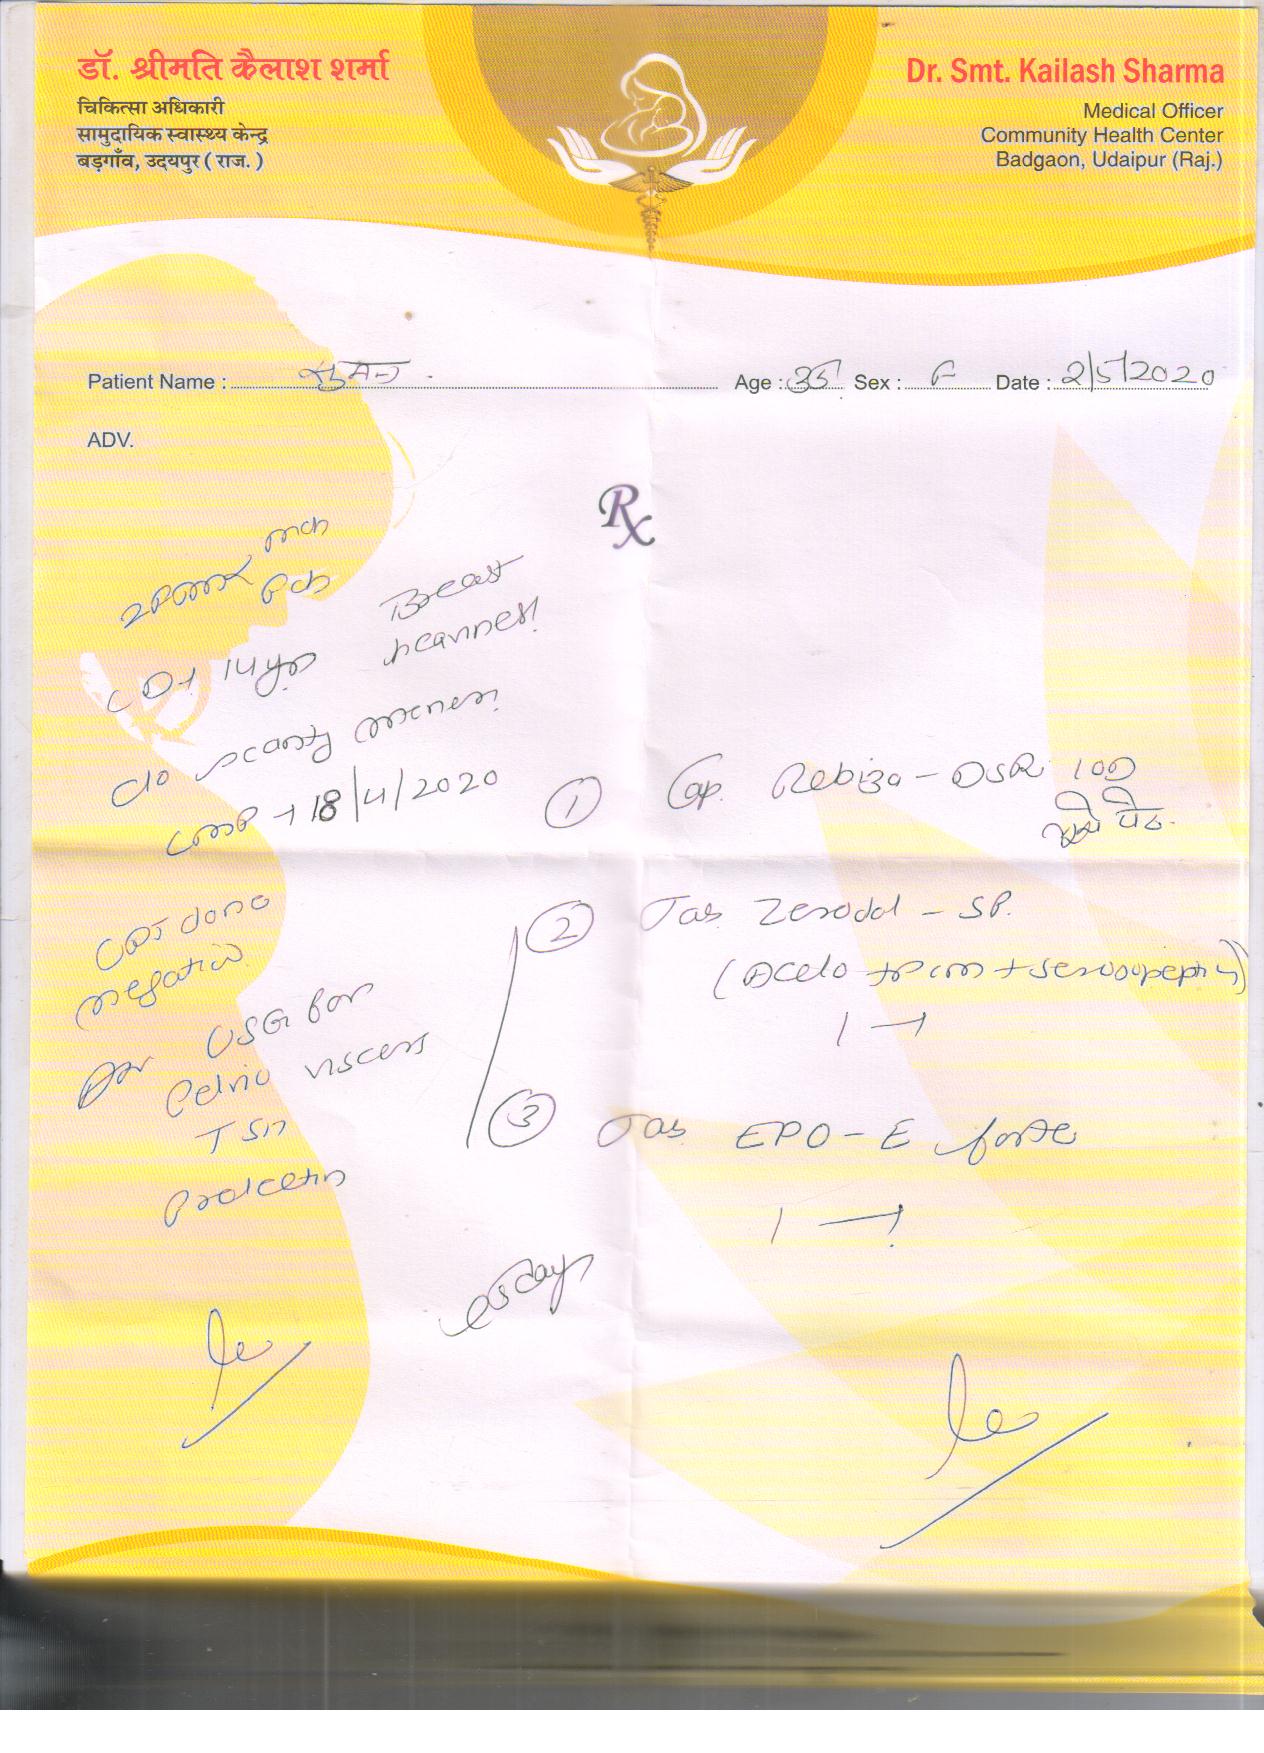 डॉ. श्रीमति कैलाश शर्मा
चिकित्सा अधिकारी
सामुदायिक स्वास्थ्य केन्द्र
बड़गाँव, उदयपुर ( राज. )
Dr. Smt. Kailash Sharma
Medical Officer
Community Health Center
Badgaon, Udaipur (Raj.)
Patient Name : सुमन Age : 35 Sex : F Date : 2/5/2020
ADV.
Rx
Breast
14yrs
c/o scanty menses
LMP → 18/4/2020
UPT done
negative
Adv USG for
Pelvic viscera
TSH
Prolactin
① Cap. Rebiza - DSR 10D
खाली पेट
② Tab Zerodol - SP.
(Aceclo + PCM + serratiopeptidase)
1 —
③ Tab EPO - E forte
1 —